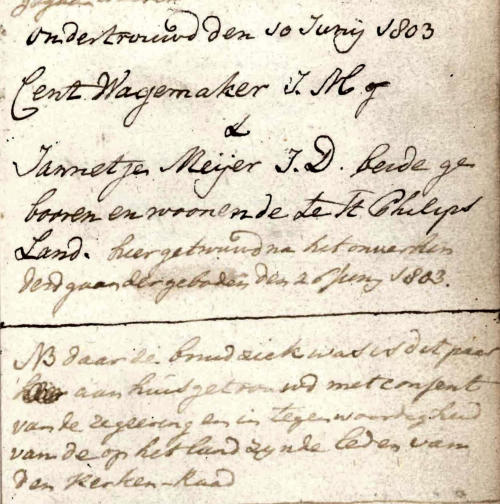 ondertrouwd den 10 Junij 1803
Cent Wagemaker J. M
&
Jannetje Meijer J. D. beide ge
booren en woonende te St Philips
Land. hier getrouwd na het onverhin
derd gaan der geboden den 26 Junij 1803.
NB daar de bruid ziek was is dit paar
aan huis getrouwd met consent
van de regeering en in tegenwoordigheid
van de op het land zynde leden van
den Kerken-Raad